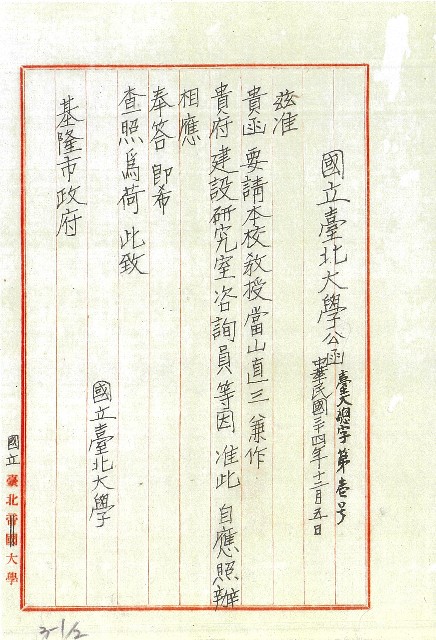 國立臺北大學公函
臺大總字第壹号
中華民國三十四年十二月五日
茲准
貴函要請本校教授當山直三兼作
貴府建設研究室咨詢員等因 准此 自應照辦
相應
奉答 即希
查照爲荷 此致
基隆市政府
國立臺北大學
國立臺北帝國大學
3-1/2